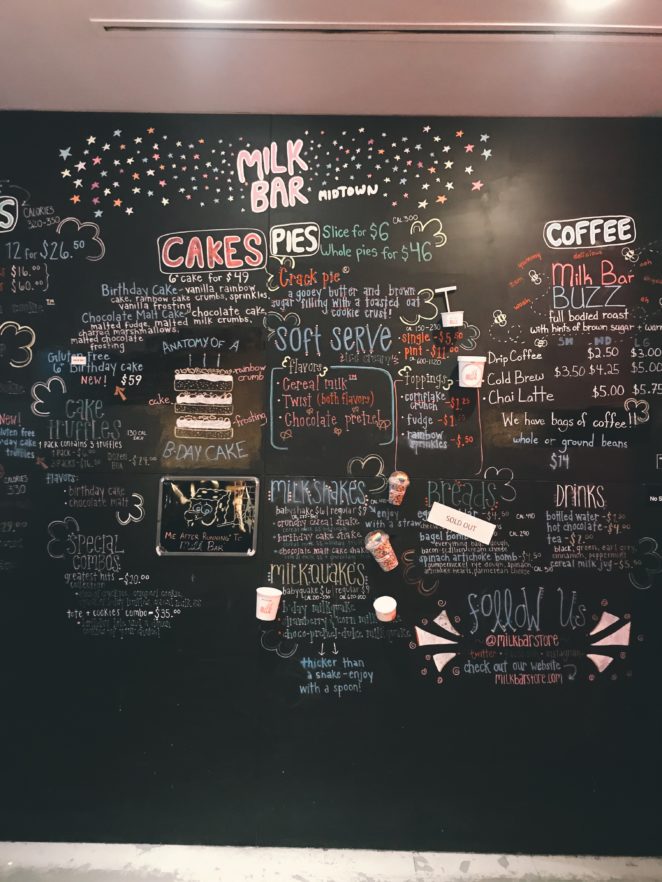 MILK
BAR MIDTOWN
S
CALORIES
320-350
12 for $26.50
$16.00
$60.00
CAKES
6" cake for $49
Birthday Cake-vanilla rainbow
cake, rainbow cake crumbs, sprinkles,
vanilla frosting
Chocolate Malt Cake-chocolate cake,
malted fudge, malted milk crumbs,
charred marshmallows,
malted chocolate
frosting
Gluten Free
6" Birthday cake
NEW! $59
ANATOMY OF A
rainbow
crumb
cake
frosting
B-DAY CAKE
PIES
Slice for $6
CAL 500
Whole pies for $46
Crack pie®
a gooey butter and brown
sugar filling with a toasted oat
cookie crust!
soft serve
flavors
• Cereal milk™
• Twist (both flavors)
• Chocolate pretzel
single
pint - $11.00
Toppings
• cornflake
crunch
• fudge
• rainbow
sprinkles - $.50
COFFEE
yummy
delicious
Milk Bar
BUZZ
full bodied roast
with hints of brown sugar + warm
SM MD LG
Drip Coffee $2.50 $3.00
Cold Brew $3.50 $4.25 $5.00
Chai Latte $5.00 $5.75
We have bags of coffee!!
whole or ground beans
$14
NEW!
gluten free
b-day cake
truffles
cake
truffles
130 CAL
EACH
1 pack contains 3 truffles
Dozen
flavors:
• birthday cake
• chocolate malt
CALORIES
330
special
combos:
greatest hits - $20.00
tote + cookies combo - $35.00
ME AFTER RUNNING TO
MILK BAR
MILKSHAKES
babyshake $6 | regular $9
• crunchy cereal shake
• birthday cake shake
• chocolate malt cake shake
enjoy
with a straw
MILKQUAKES
babyquake $6 | regular $9
• b-day milkquake
• cranberry & corn milk quake
• choco-pretzel-dulce milk quake
thicker than
a shake-enjoy
with a spoon!
Breads
SOLD OUT
bagel bomb
"everything bag" dough,
bacon-scallion cream cheese
spinach artichoke bomb - $4.50
pumpernickel rye dough, spinach
artichoke hearts, parmesan cheese
DRINKS
bottled water
hot chocolate - $4.00
tea - $2.00
black, green, earl grey,
cinnamon, peppermint
cereal milk jug - $5.50
follow us
@milkbarstore
twitter instagram
check out our website
milkbarstore.com